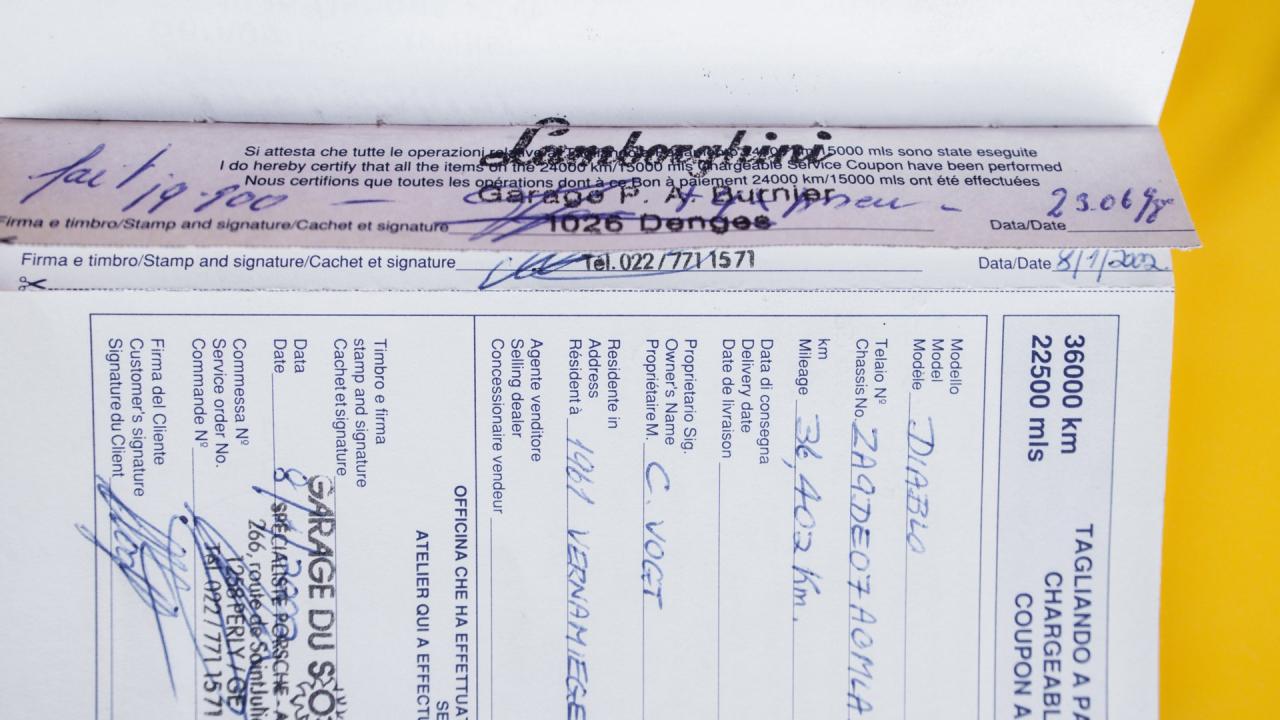 Lamborghini
Si attesta che tutte le operazioni 15000 mls sono state eseguite
I do hereby certify that all the items on the 24000 km/15000 mls Chargeable Service Coupon have been performed
Nous certifions que toutes les opérations dont à ce Bon à paiement 24000 km/15000 mls ont été effectuées
fait 19.900 —
Garage P. A. Burnier
23.06
Firma e timbro/Stamp and signature/Cachet et signature
1026 Denges
Data/Date
Firma e timbro/Stamp and signature/Cachet et signature
Tél. 022/771 15 71
Data/Date 8/1/2002
36000 km
22500 mls
TAGLIANDO A PA
CHARGEABL
COUPON A
Modello
Model
Modèle DIABLO
Telaio Nº
Chassis No. ZA9DE07A0MLA
km
Mileage 36,402 Km.
Data di consegna
Delivery date
Date de livraison
Proprietario Sig.
Owner's Name
Propriétaire M. C. VOGT
Residente in
Address
Résident à 1961 VERNAMIEGE
Agente venditore
Selling dealer
Concessionnaire vendeur
OFFICINA CHE HA EFFETTUAT
SE
ATELIER QUI A EFFECTU
Timbro e firma
stamp and signature
Cachet et signature
GARAGE DU
SPECIALISTE PORSCHE - A
266, route de Saint Julie
1258 PERLY / GE
Tél. 022 / 771 15 71
Data
Date 8/1/2002
Commessa Nº
Service order No.
Commande Nº
Firma del Cliente
Customer's signature
Signature du Client